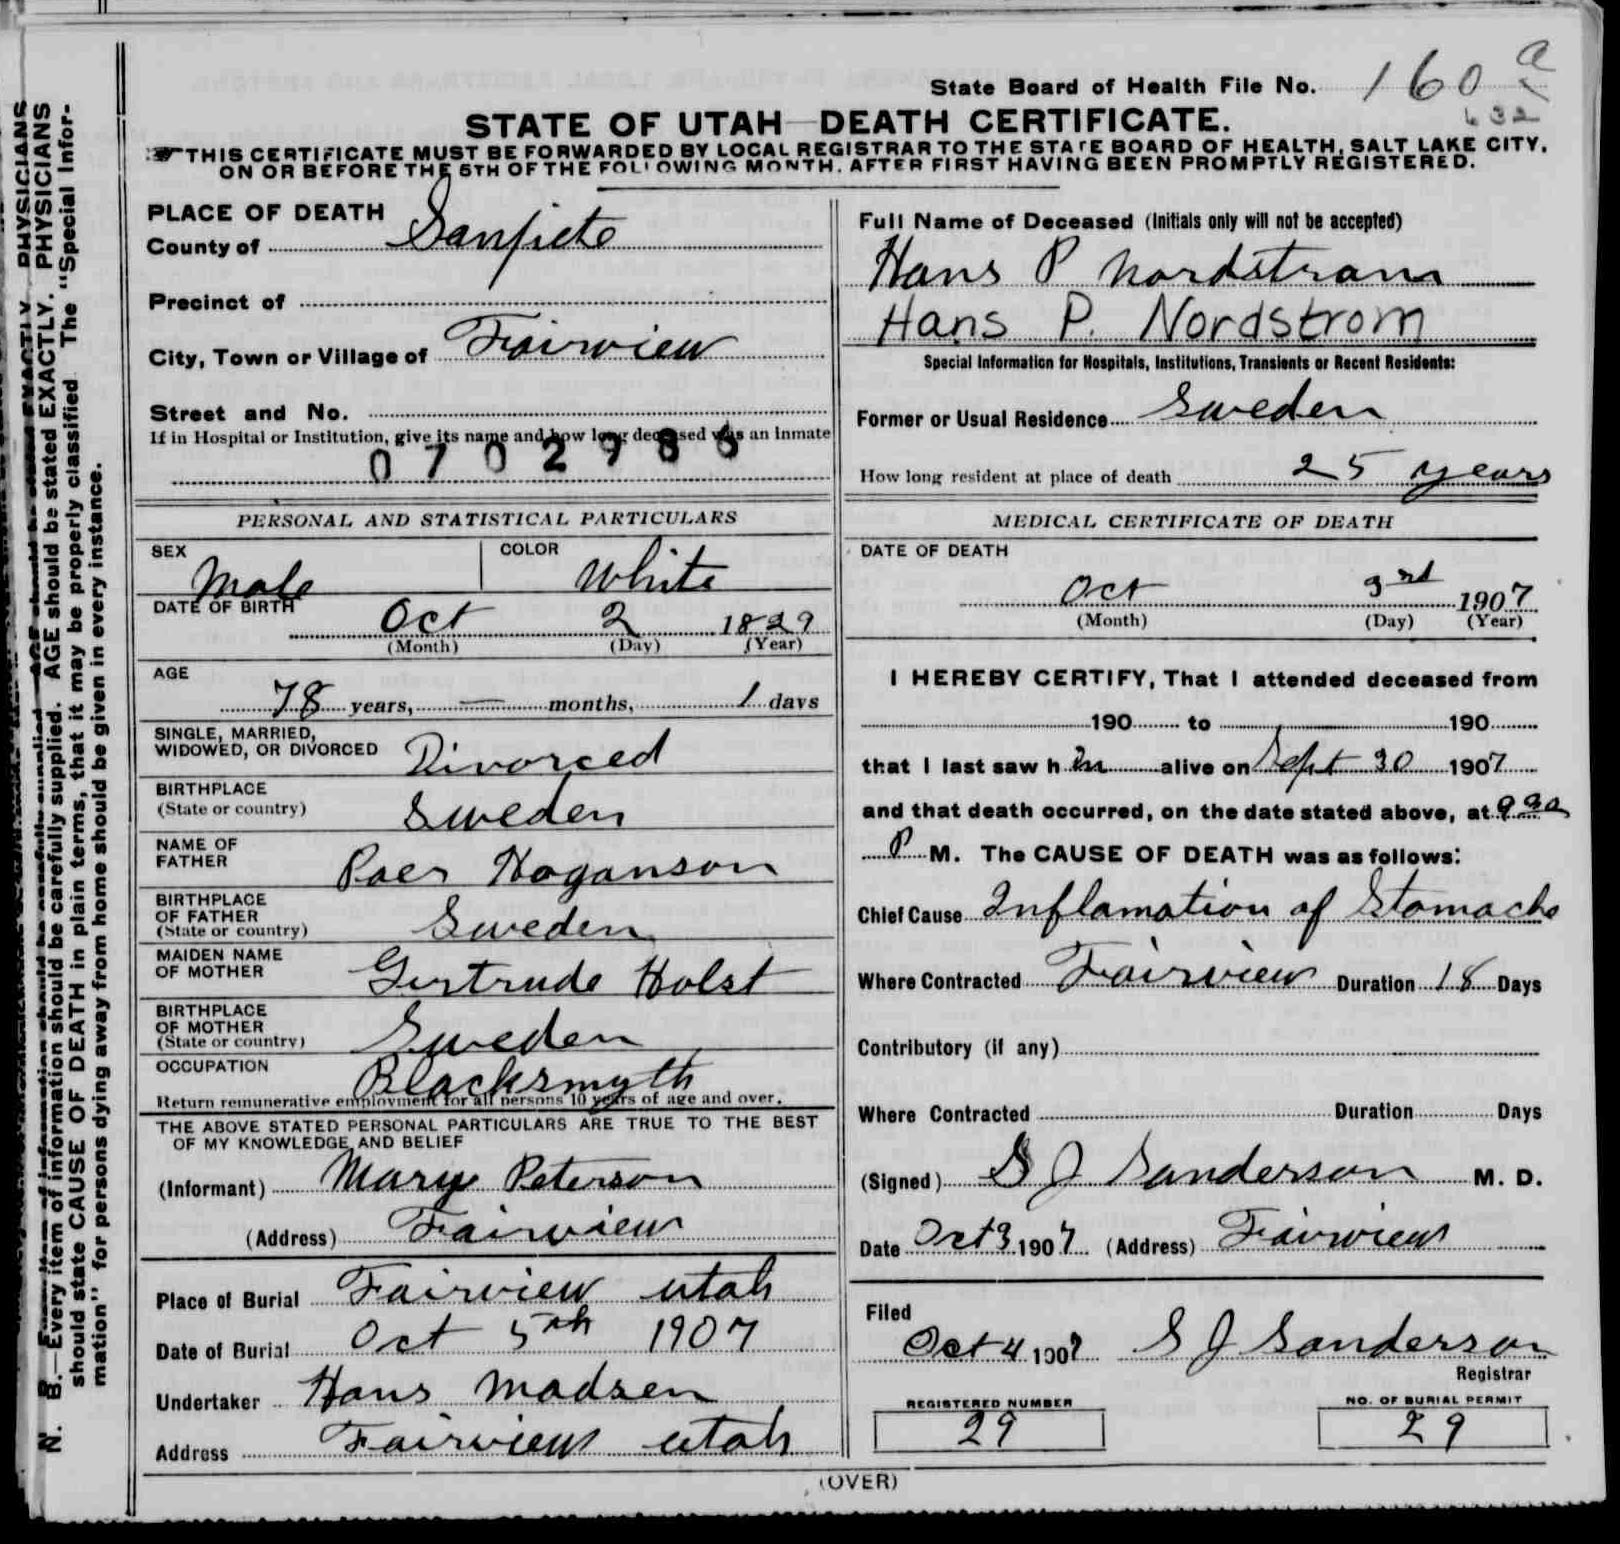 State Board of Health File No. 160 a
632
STATE OF UTAH—DEATH CERTIFICATE.
THIS CERTIFICATE MUST BE FORWARDED BY LOCAL REGISTRAR TO THE STATE BOARD OF HEALTH, SALT LAKE CITY,
ON OR BEFORE THE 5TH OF THE FOLLOWING MONTH, AFTER FIRST HAVING BEEN PROMPTLY REGISTERED.
PLACE OF DEATH
County of Sanpete
Precinct of
City, Town or Village of Fairview
Street and No.
If in Hospital or Institution, give its name and how long deceased was an Inmate
0702986
PERSONAL AND STATISTICAL PARTICULARS
SEX Male COLOR White
DATE OF BIRTH
Oct 2 1829
(Month) (Day) (Year)
AGE
78 years, — months, 1 days
SINGLE, MARRIED,
WIDOWED, OR DIVORCED Divorced
BIRTHPLACE
(State or country) Sweden
NAME OF
FATHER Paer Hoganson
BIRTHPLACE
OF FATHER
(State or country) Sweden
MAIDEN NAME
OF MOTHER Gertrude Holst
BIRTHPLACE
OF MOTHER
(State or country) Sweden
OCCUPATION Blacksmyth
Return remunerative employment for all persons 10 years of age and over.
THE ABOVE STATED PERSONAL PARTICULARS ARE TRUE TO THE BEST
OF MY KNOWLEDGE AND BELIEF
(Informant) Mary Peterson
(Address) Fairview
Place of Burial Fairview utah
Date of Burial Oct 5th 1907
Undertaker Hans Madsen
Address Fairview utah
Full Name of Deceased (Initials only will not be accepted)
Hans P Nordstram
Hans P. Nordstrom
Special Information for Hospitals, Institutions, Transients or Recent Residents:
Former or Usual Residence Sweden
How long resident at place of death 25 years
MEDICAL CERTIFICATE OF DEATH
DATE OF DEATH
Oct 3rd 1907
(Month) (Day) (Year)
I HEREBY CERTIFY, That I attended deceased from
190 to 190
that I last saw h im alive on Sept 30 1907
and that death occurred, on the date stated above, at 9 30
P M. The CAUSE OF DEATH was as follows:
Chief Cause Inflamation of Stomach
Where Contracted Fairview Duration 18 Days
Contributory (if any)
Where Contracted Duration Days
(Signed) S J Sanderson M. D.
Date Oct 3 1907 (Address) Fairview
Filed
Oct 4 1907 S J Sanderson
Registrar
REGISTERED NUMBER
29
NO. OF BURIAL PERMIT
29
(OVER)
N. B.—Every item of information should be carefully supplied. AGE should be stated EXACTLY. PHYSICIANS
should state CAUSE OF DEATH in plain terms, that it may be properly classified. The "Special Infor-
mation" for persons dying away from home should be given in every instance.